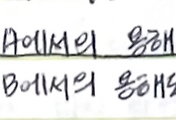 A에서의 용해
B에서의 용해도